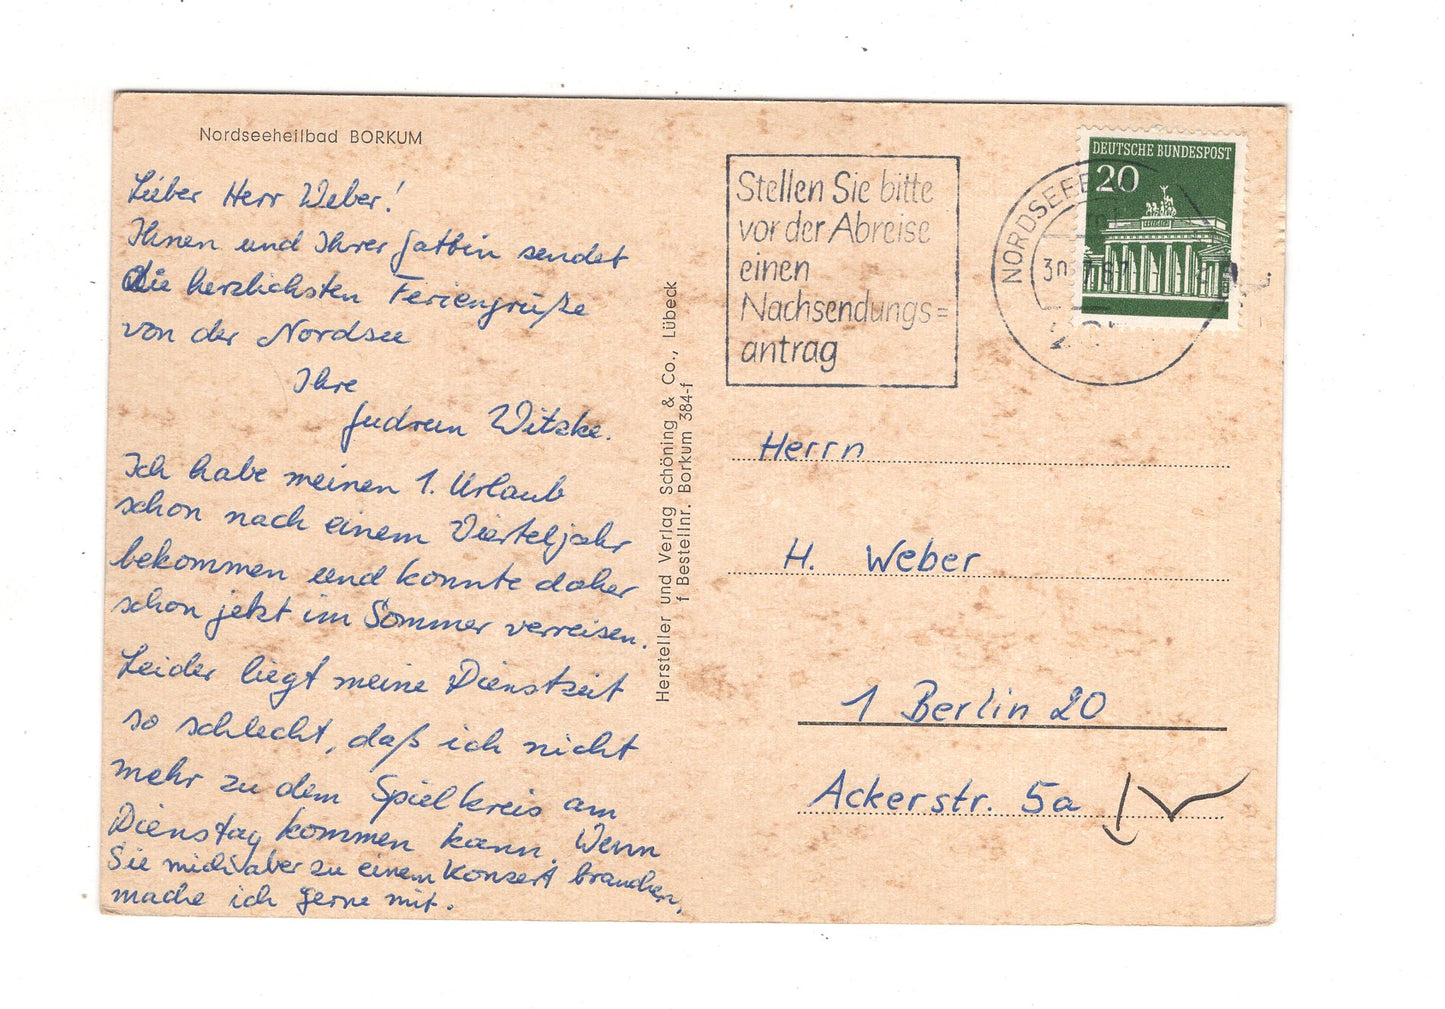 Nordseeheilbad BORKUM
Lieber Herr Weber!
Ihnen und Ihrer Gattin sendet
die herzlichsten Feriengrüße
von der Nordsee
Ihre
Gudrun Witzke.
Ich habe meinen 1. Urlaub
schon nach einem Vierteljahr
bekommen und konnte daher
schon jetzt im Sommer verreisen.
Leider liegt meine Dienstzeit
so schlecht, daß ich nicht
mehr zu dem Spielkreis am
Dienstag kommen kann. Wenn
Sie mich aber zu einem Konzert brauchen,
mache ich gerne mit.
Hersteller und Verlag Schöning & Co., Lübeck
f Bestellnr. Borkum 384-f
Stellen Sie bitte
vor der Abreise
einen
Nachsendungs=
antrag
DEUTSCHE BUNDESPOST
20
30.
Herrn
H. Weber
1 Berlin 20
Ackerstr. 5a